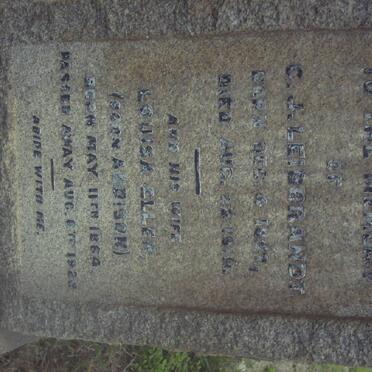 TO THE MEMORY
OF
C. J. LEIBBRANDT
BORN
DIED AUG. 22
AND HIS WIFE
LOUISA ELLEN
(BORN ADDISON)
BORN MAY 11TH 1864
PASSED AWAY AUG. 6TH 1928
ABIDE WITH ME.